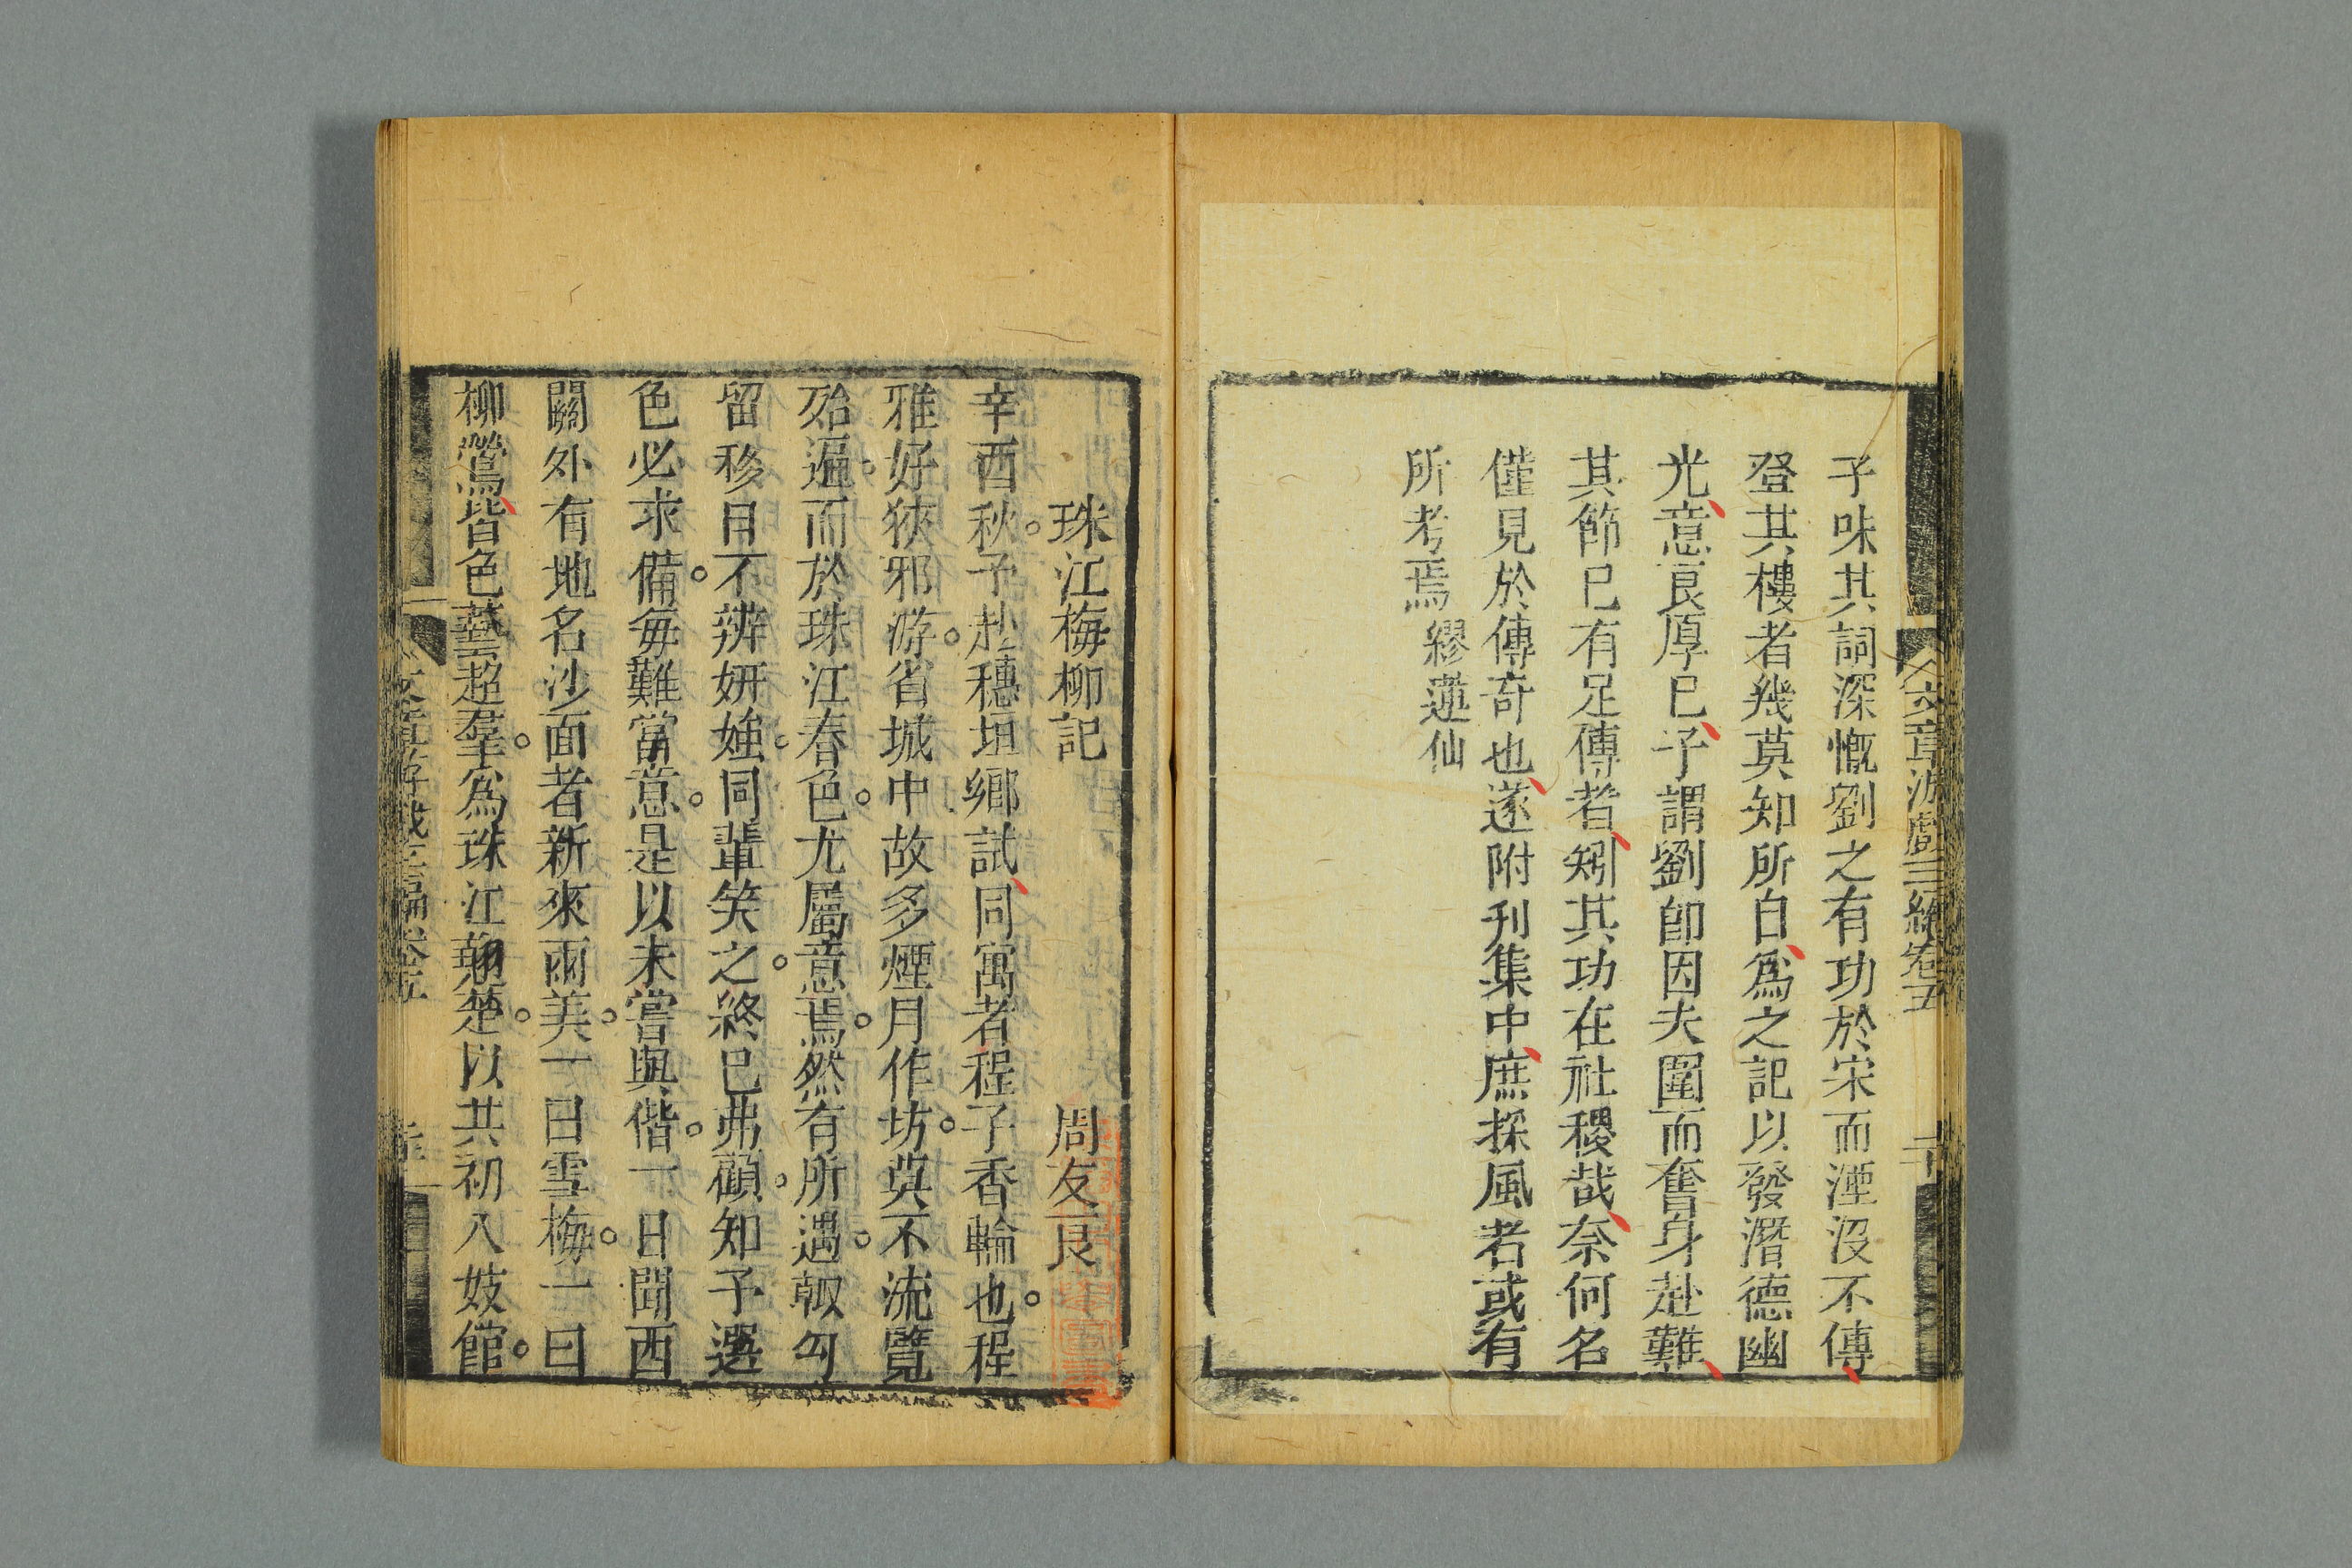 文章游戲三編卷五
二十
子味其詞深慨劉之有功於宋而湮沒不傳
登其樓者幾莫知所自爲之記以發潛德幽
光意良厚巳予謂劉卽因夫圍而奮身赴難
其節巳有足傳者矧其功在社稷哉奈何名
僅見於傳奇也遂附刊集中庶採風者或有
所考焉 繆蓮仙
珠江梅柳記 周友良
辛酉秋予赴穗垣鄉試同寓者程子香輪也程
雅好狹邪游省城中故多煙月作坊莫不流覽
殆遍而於珠江春色尤屬意焉然有所遇輙勾
留移日不辨妍媸同輩笑之終巳弗顧知予選
色必求備每難當意是以未嘗與偕一日聞西
關外有地名沙面者新來兩美一曰雪梅一曰
柳鶯皆色藝超羣爲珠江翹楚以其初入妓館
文章游戲三編卷五